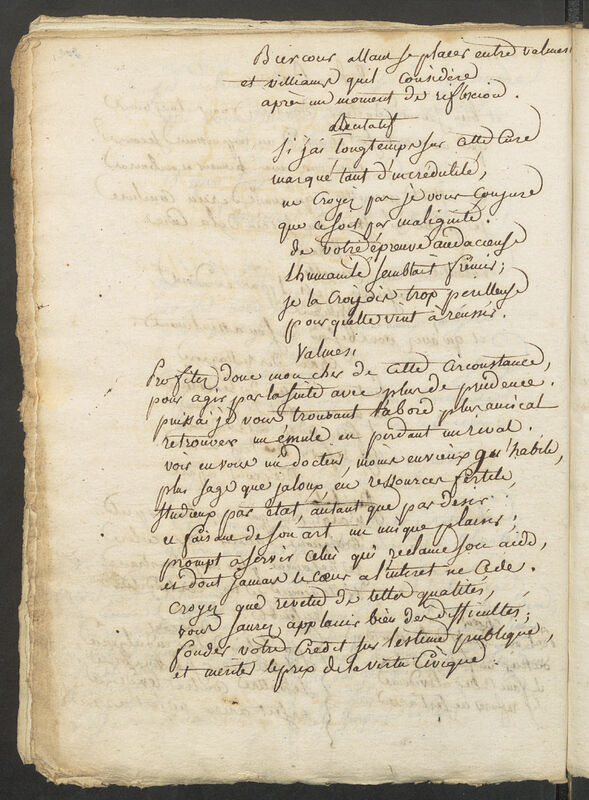 Biercour allant se placer entre valmer
et villiams qu'il considère
après un moment de reflexion.
Récitatif
Si j'ai longtemps sur cette Cure
marqué tant d'incredulité,
ne Croyez pas je vous Conjure
que ce soit par malignité.
de votre épreuve audacieuse
l'humanité semblait frémir;
je la Croyois trop perilleuse
pour qu'elle vint à réussir.
Valmer.
Profitez donc mon cher de cette circonstance,
pour agir par la suite avec plus de prudence.
puissai je vous trouvant l'abord plus amical
retrouver un émule en perdant un rival.
voir en vous un docteur, moins envieux qu'habile,
plus sage que jaloux, en ressources fertile,
studieux par état, autant que par desir
et faisant de son art un unique plaisir,
prompt à servir celui qui reclame son aide,
et dont jamais le cœur a l'interet ne Cède.
Croyez que revetu de telles qualités,
vous saurez applanir bien des difficultés;
fonder votre Credit sur l'estime publique,
et meriter le prix de la vertu Civique.